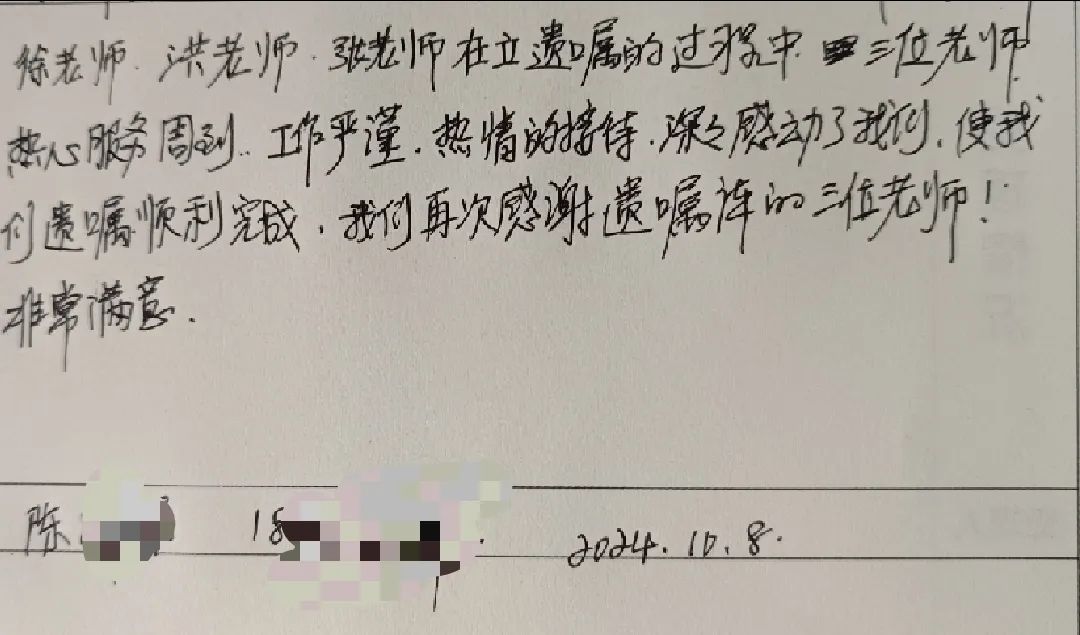 徐老师.洪老师.张老师在立遗嘱的过程中 三位老师
热心服务周到.工作严谨.热情的接待.深々感动了我们.使我
们遗嘱顺利完成.我们再次感谢遗嘱库的三位老师!
非常满意.
陈 18 2024.10.8.